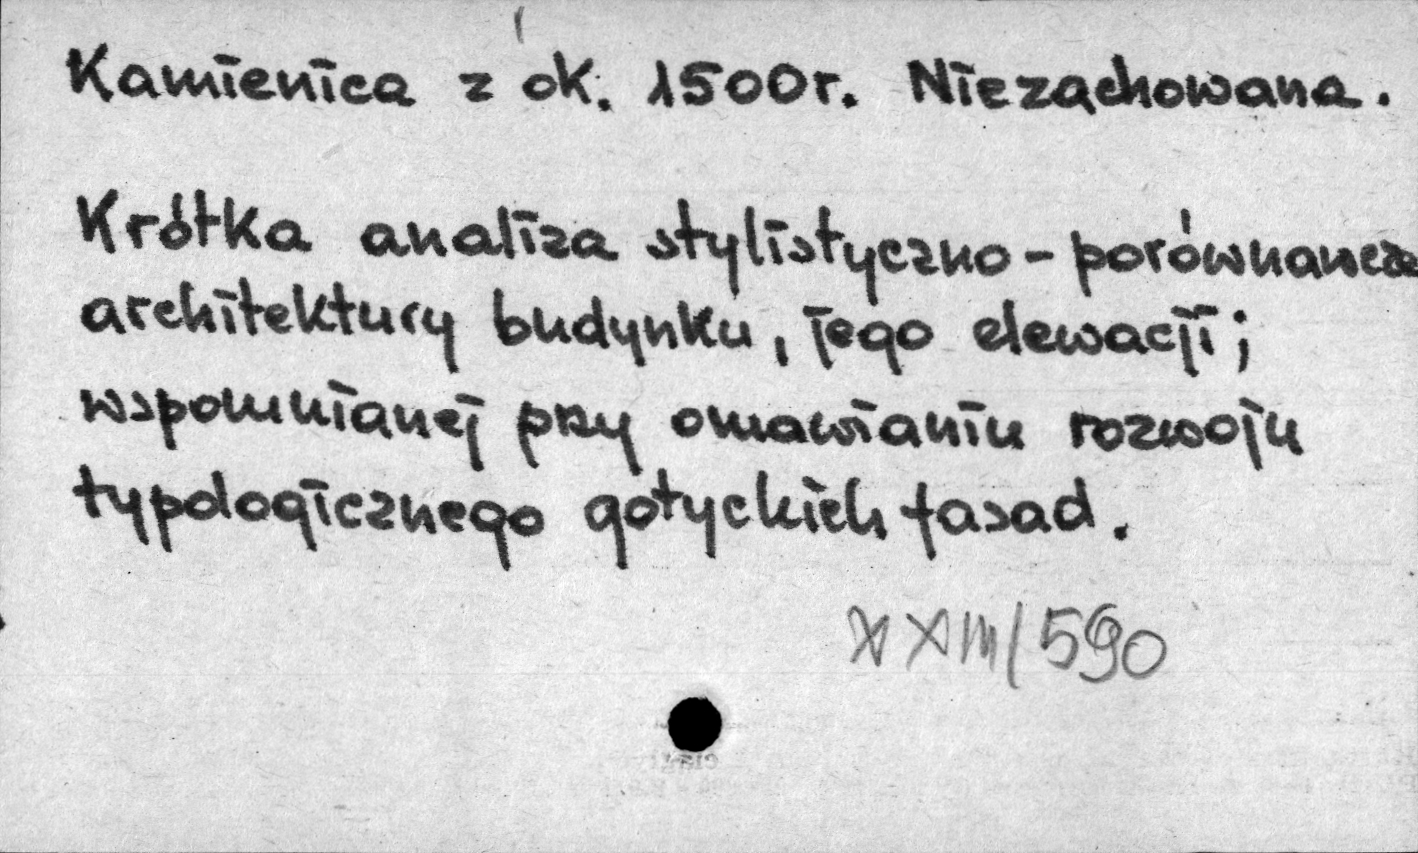 Kamienica z ok. 1500r. Niezachowana.
Krótka analiza stylistyczno-porównawcza
architektury budynku, jego elewacji;
wspomnianej przy omawianiu rozwoju
typologicznego gotyckich fasad.
XXIII/590